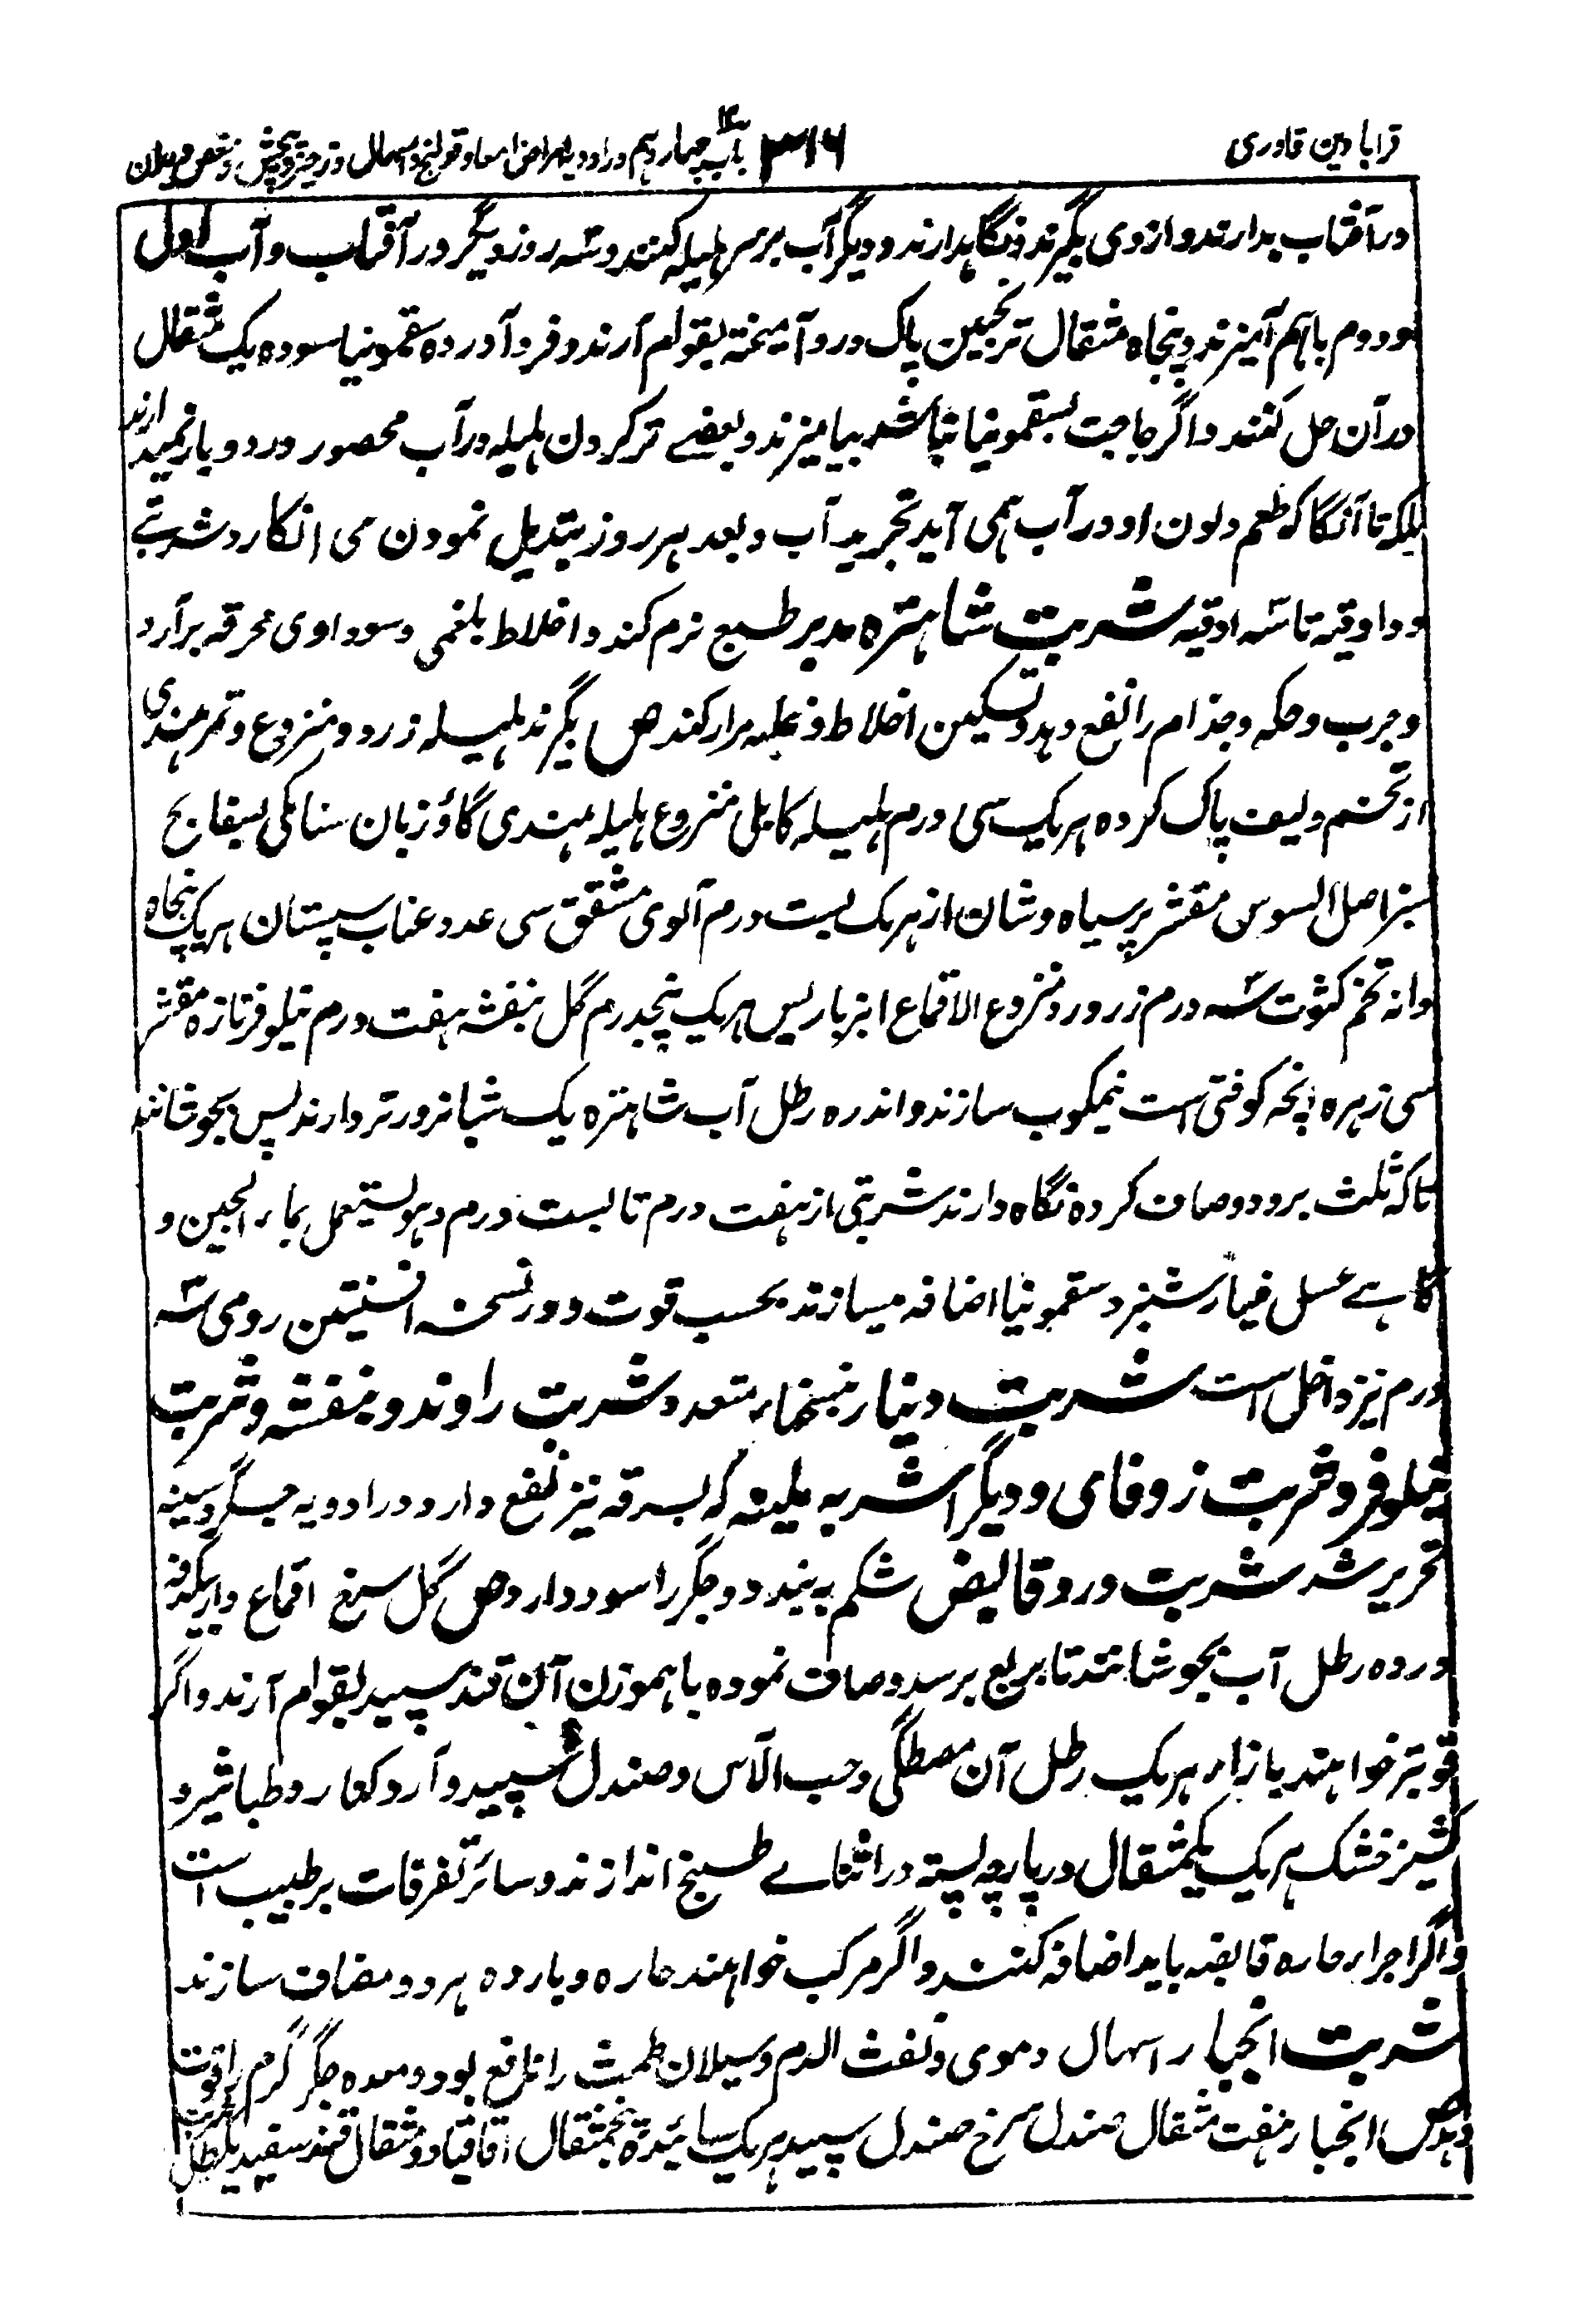 قرابادین قادری ۳۱۶ باب چهاردهم در ادویه امراض امعا و قولنج و اسهال و زحیر و پیچش و مغص و دیدان
در آفتاب بدارند و از وی بگیرند و نگاهدارند و دیگر آب بر سر هلیله کنند و سه روز دیگر در آفتاب و آب اول
و دوم باهم آمیزند و پنجاه مثقال ترنجبین پاک در و آمیخته بقوام آرند و فرود آورده سقمونیا سوده یک مثقال
در آن حل کنند و اگر حاجت بسقمونیا نباشد نیامیزند و بعضے تر کردن هلیله در آب محصور در دو بار نمیدارند
بلکه تا آنگاه که طعم و لون او در آب همی آید تجرید آب و بعد هر روز تبدیل نمودن می انگارد شربتے
دو اوقیه تا سه اوقیه شربت شاهتره مدبر طبع نرم کند و اخلاط بلغمی و سوداوی محرقه برآرد
و جرب و حکه و جذام را نفع دهد و تسکین اخلاط و غلبه مرار کند ص بگیرند هلیله زرد منزوع و تمر هندی
از تخم و لیف پاک کرده هر یک سی درم هلیله کابلی منزوع هلیله هندی گاؤزبان سنا مکی بسفایج
سبز اصل السوس مقشر پرسیاوشان از هر یک بست درم آلوی مشقق سی عدد عناب سپستان هر یک پنجاه
دانه تخم کثوث سه درم زرورد منزوع الاقماع انبرباریس هر یک پنجدرم گل بنفشه هفت درم نیلوفر تازه مقشر
سی زهره آنچه کوفتی است نیمکوب سازند و اندر ده رطل آب شاهتره یک شبانروز تر دارند پس بجوشانند
تا که ثلث برود و صاف کرده نگاه دارند شربتی از هفت درم تا بست درم و هو یستعمل بماء الجبن و
گاہے عسل خیارشنبر و سقمونیا اضافه میسازند بحسب قوت و در نسخه افسنتین رومی سه
درم نیز داخل است شربت دینار بنسخهاء متعدد و شربت راوند و بنفشه و شربت
نیلوفر و شربت زوفای و دیگر اشربه ملینه که بسرفه نیز نفع دارد در ادویه جگر و سینه
تحریر شد شربت ورد قابض شکم به بندد و جگر را سود دارد ص گل سرخ اقماع دار یکدفه
در ده رطل آب بجوشانند تا بربع برسد و صاف نموده با هموزن آن قند سپید بقوام آرند و اگر
قویتر خواهند بازاء هر یک رطل آن مصطگی و حب الآس و صندل سپید و آرد کنار و طباشیر و
کشنیز خشک هر یک یکمثقال در پارچه بسته در اثناے طبخ اندازند و سائر تفرقات بر طبیب است
و اگر اجزاء حاره قابضه باید اضافه کنند و اگر مرکب خواهند حاره و بارده هر دو مضاف سازند
شربت انجبار اسهال دموی و نفث الدم و سیلان طمث را نافع بود و معده جگر گرم را قوت
دهد ص انجبار هفت مثقال صندل سرخ صندل سپید هر یک سائیده پنجمثقال اقاقیا دو مثقال قند سفید یکرطل